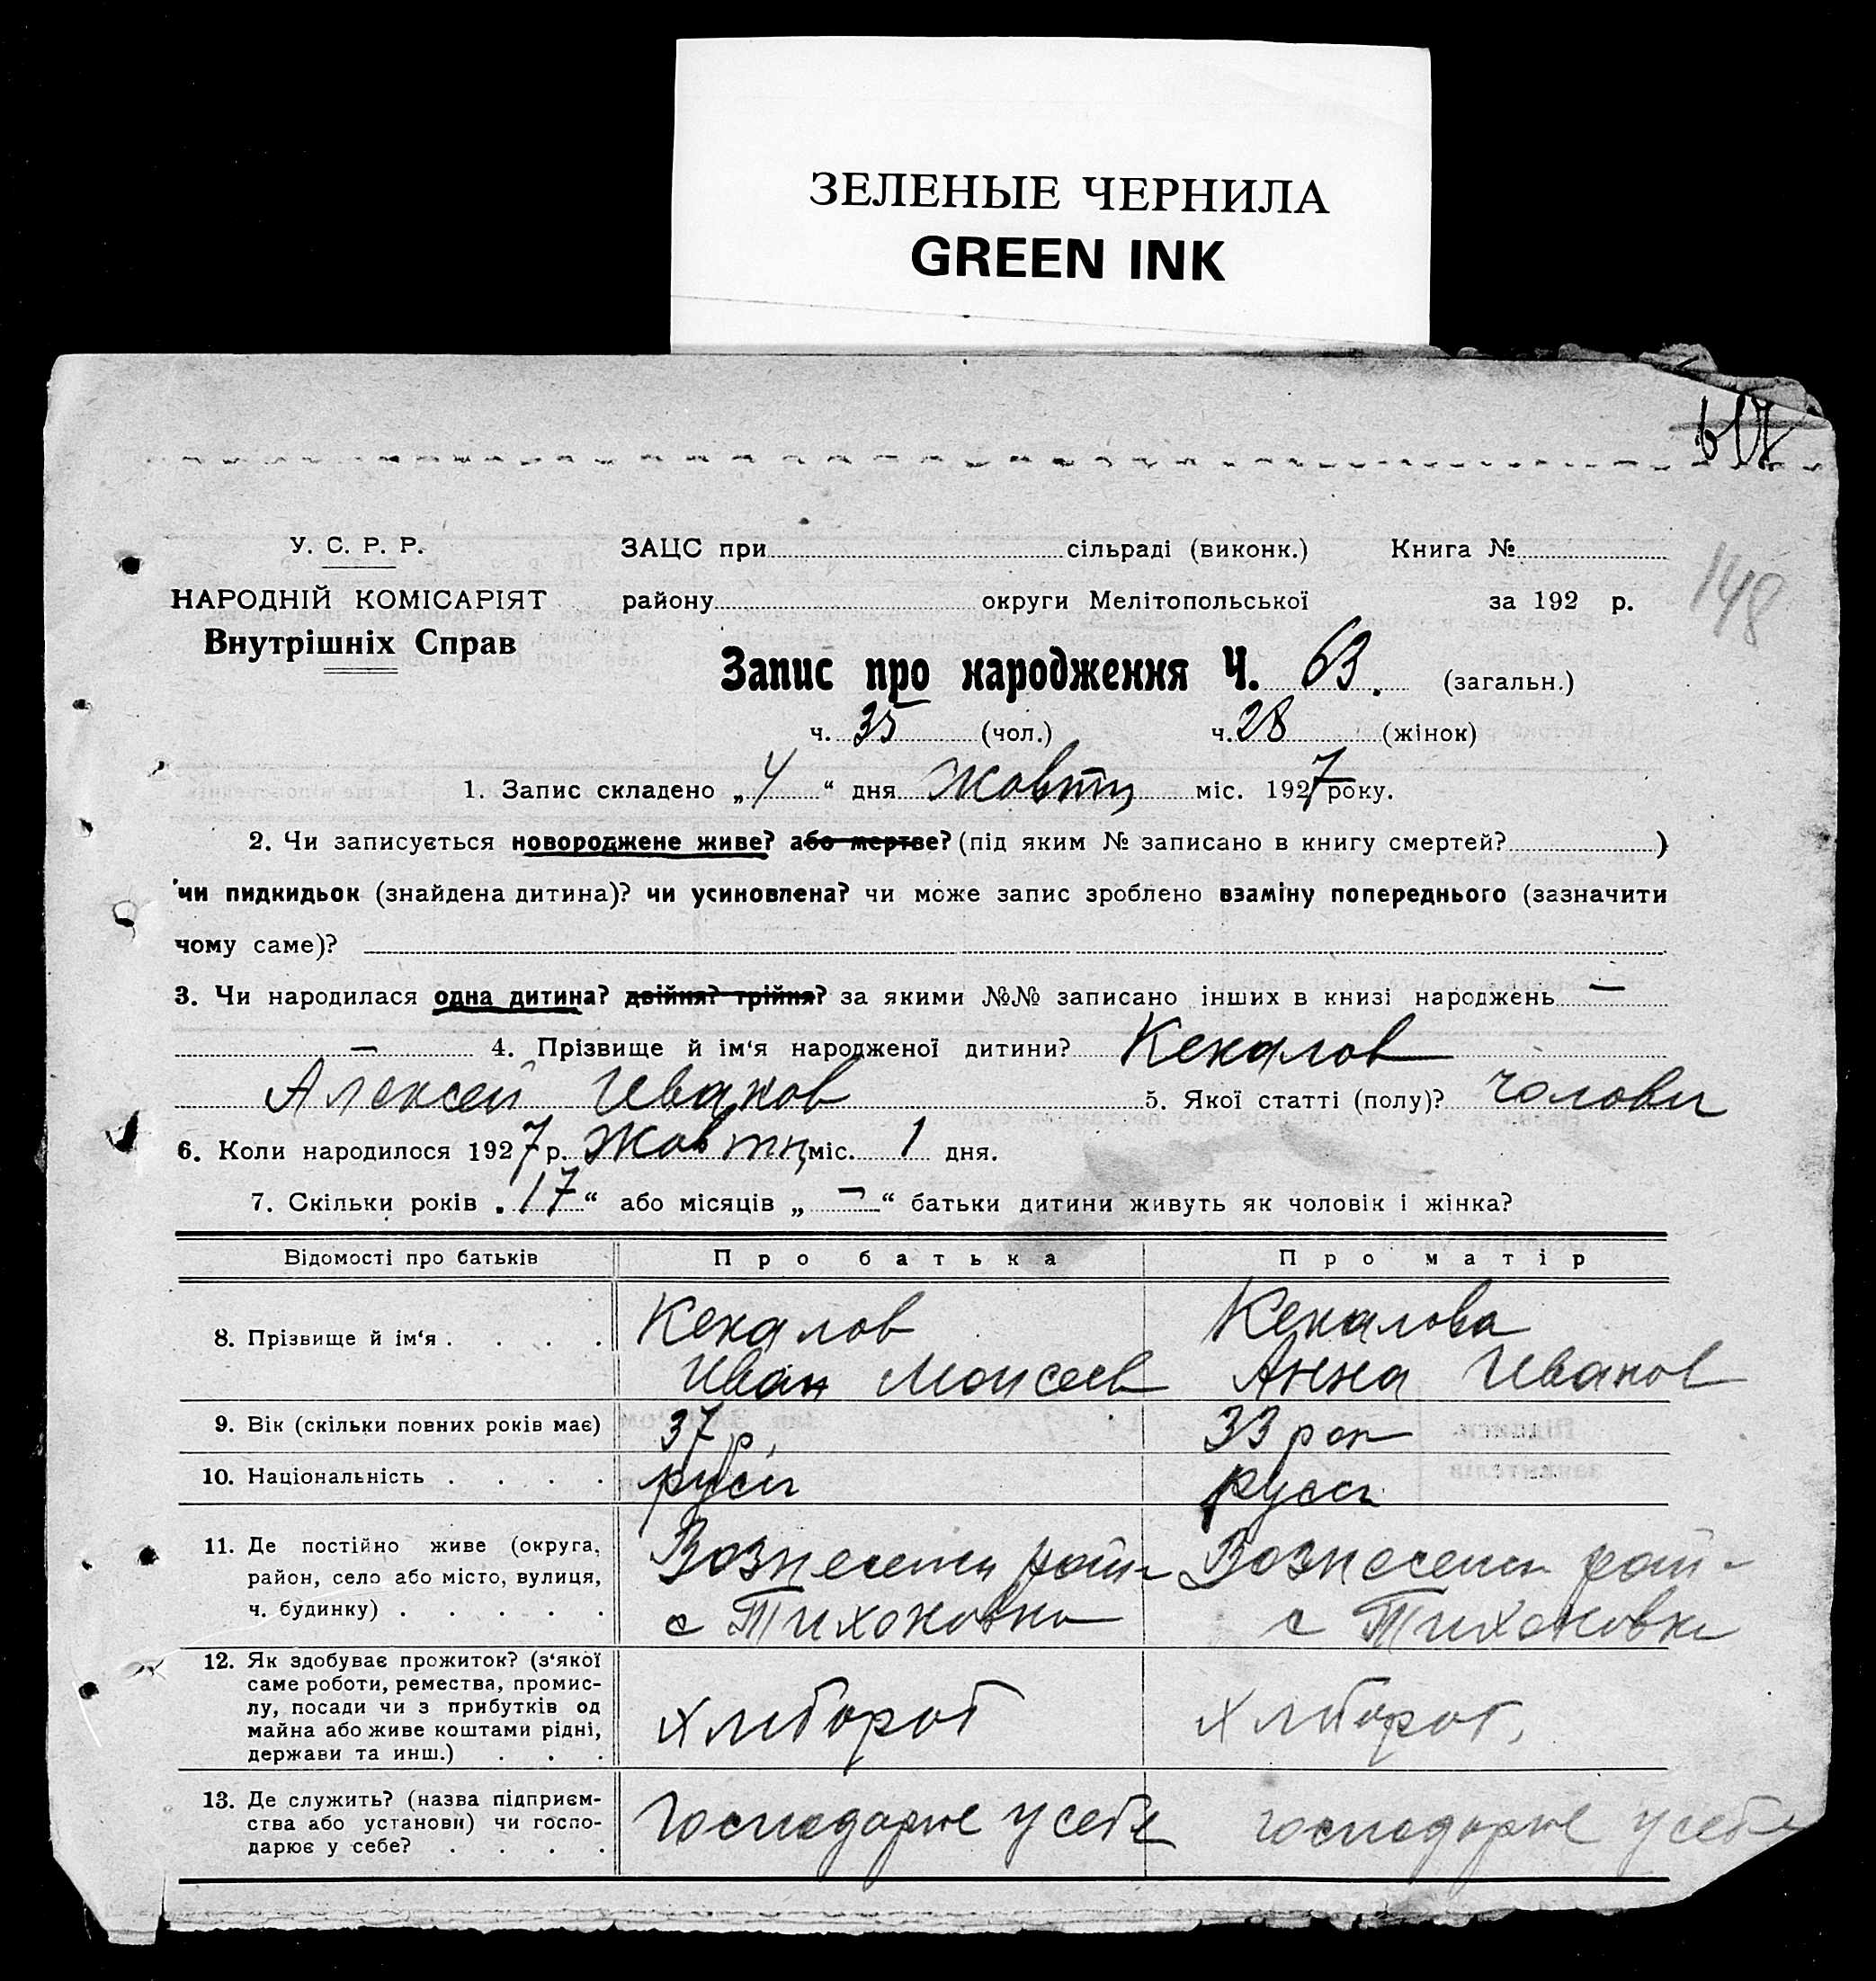 ЗЕЛЕНЫЕ ЧЕРНИЛА
GREEN INK
148
У. С. Р. Р. ЗАЦС при сільраді (виконк.) Книга №
НАРОДНІЙ КОМІСАРІЯТ району округи Мелітопольської за 192 р.
Внутрішніх Справ
Запис про народження Ч. 63. (загальн.)
ч. 35 (чол.) ч. 28 (жінок)
1. Запис складено „4“ дня Жовтн міс. 1927 року.
2. Чи записується новороджене живе? або мертве? (під яким № записано в книгу смертей? )
чи пидкидьок (знайдена дитина)? чи усиновлена? чи може запис зроблено взаміну попереднього (зазначити
чому саме)?
3. Чи народилася одна дитина? двійня? трійня? за якими №№ записано інших в книзі народжень —
— 4. Прізвище й ім‘я народженої дитини? Кекалов
Алексей Иванов 5. Якої статті (полу)? чолови
6. Коли народилося 1927 р. Жовтн міс. 1 дня.
7. Скільки років „17“ або місяців „—“ батьки дитини живуть як чоловік і жінка?
Відомості про батьків Про батька Про матір
8. Прізвище й ім‘я . . . . Кекалов Кекалова
Иван Моисеев Анна Иванов
9. Вік (скільки повних років має) 37 р. 33 рок
10. Національність . . . . русск русск
11. Де постійно живе (округа, Вознесенн рай- Вознесенн рай-
район, село або місто, вулиця, с Тихоновка с Тихоновка
ч. будинку) . . . . .
12. Як здобуває прожиток? (з‘якої
саме роботи, ремества, промис-
лу, посади чи з прибутків од хлібороб хлібороб,
майна або живе коштами рідні,
держави та инш.) . . .
13. Де служить? (назва підприєм-
ства або установи) чи госпо- Господарює у себе господарює у себе
дарює у себе? . . . .